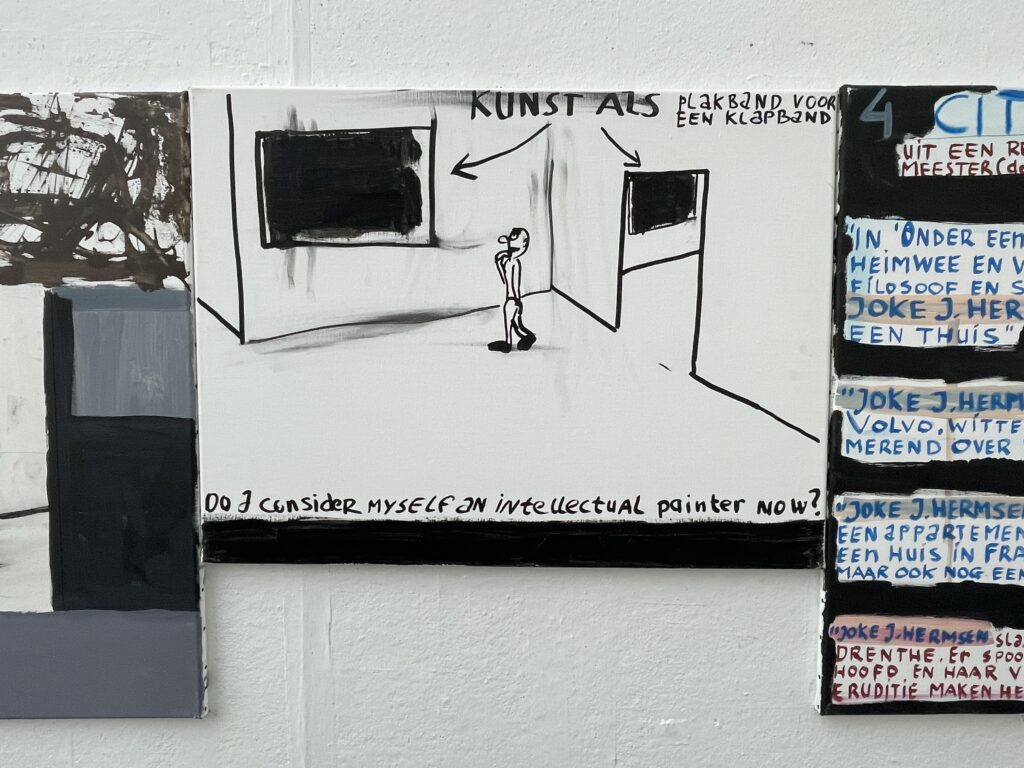 KUNST ALS PLAKBAND VOOR
EEN KLAPBAND
DO I consider MYSELF an intellectual painter now?
4 CIT
UIT EEN RE
MEESTER (de
"IN 'ONDER EEN
HEIMWEE EN V
FILOSOOF EN S
JOKE J. HER
EEN THUIS"
"JOKE J. HERM
VOLVO, WITTE
MEREND OVER
"JOKE J. HERMSEN
EEN APPARTEMEN
EEN HUIS IN FRA
MAAR OOK NOG EEN
"JOKE J. HERMSEN sla
DRENTHE. Er SPOO
HOOFD EN HAAR V
ERUDITIE MAKEN HE